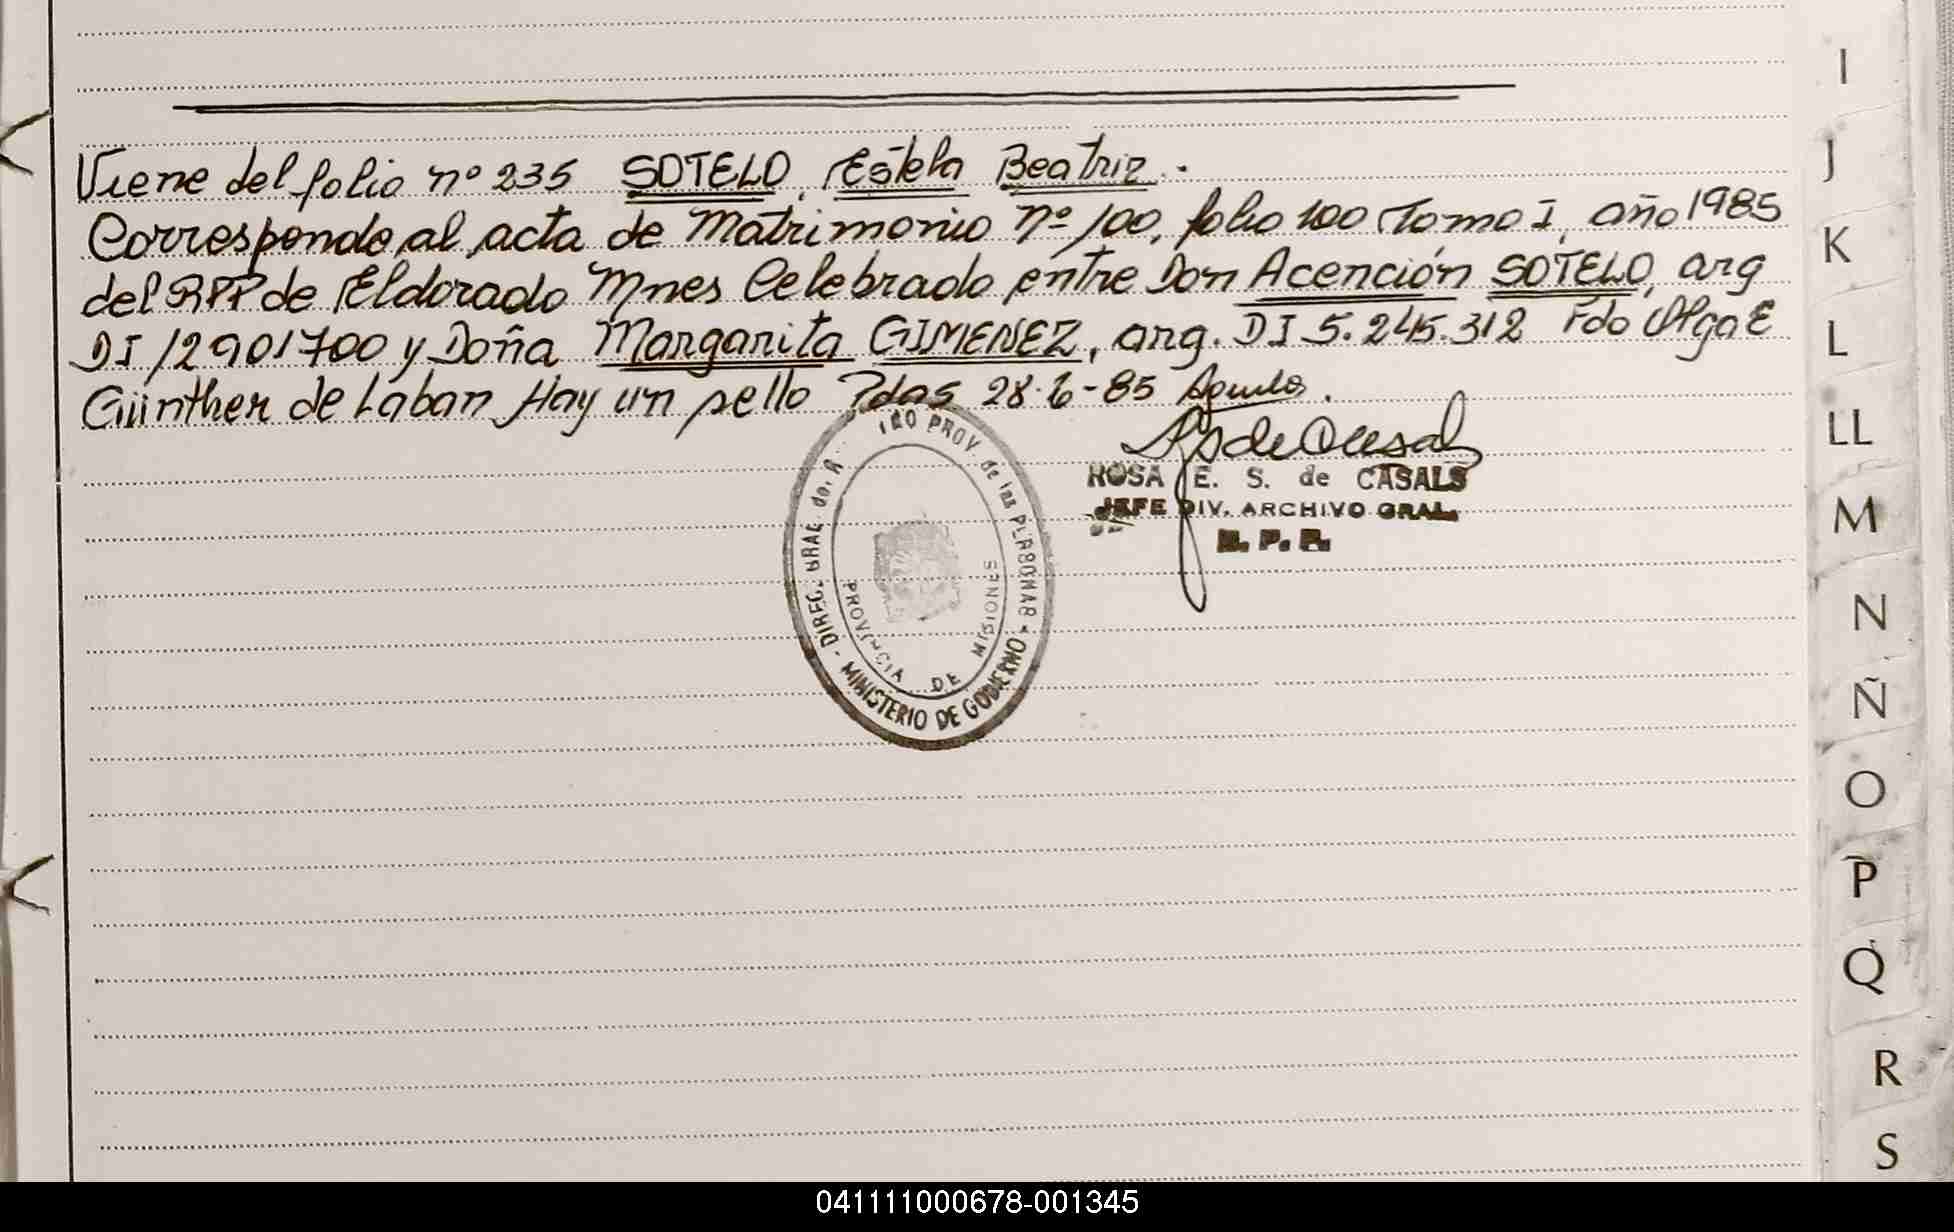 Viene del folio nº 235 SOTELO, Estela Beatriz.
Corresponde al acta de Matrimonio nº 100, folio 100 Tomo I, año 1985
del RPP de Eldorado Mnes Celebrado entre Don Acención SOTELO, arg
DI 12901700 y Doña Margarita GIMENEZ, arg. DI 5.245.312 Fdo Olga E
Günther de Laban Hay un sello Pdas 28-6-85
ROSA E. S. de CASALS
JEFE DIV. ARCHIVO GRAL.
R. P. P.
PROV de las PERSONAS
MINISTERIO DE GOBIERNO
PROVINCIA DE MISIONES
I
J
K
L
LL
M
N
Ñ
O
P
Q
R
S
041111000678-001345